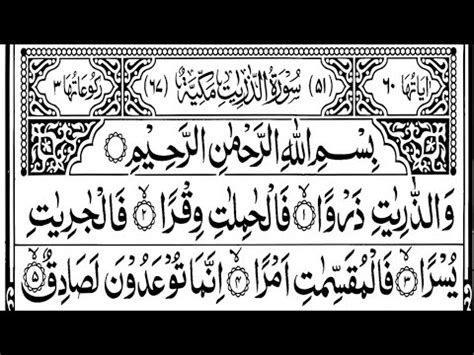 اٰیَاتُهَا ٦٠ (٥١) سُوْرَةُ الذّٰرِیٰتِ مَكِّیَّةٌ (٦٧) رُكُوْعَاتُهَا ٣
بِسْمِ اللّٰهِ الرَّحْمٰنِ الرَّحِیْمِ
وَالذّٰرِیٰتِ ذَرْوًا ۙ﴿١﴾ فَالْحٰمِلٰتِ وِقْرًا ۙ﴿٢﴾ فَالْجٰرِیٰتِ
یُسْرًا ۙ﴿٣﴾ فَالْمُقَسِّمٰتِ اَمْرًا ۙ﴿٤﴾ اِنَّمَا تُوْعَدُوْنَ لَصَادِقٌ ۙ﴿٥﴾